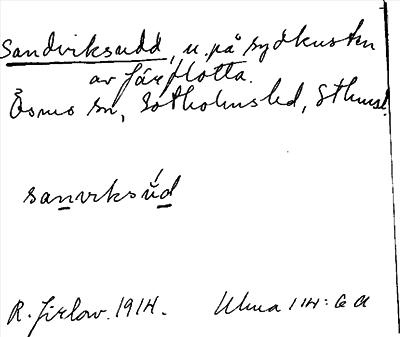 Sandviksudd, u. på sydkusten
av Järflotta.
Ösmo sn, Sotholms hd, Sthmsl.
sanviksúd
R. Jirlow. 1914.
Ulma 114: 6 a